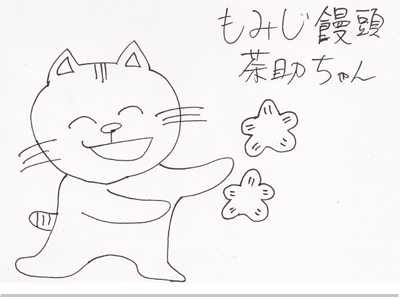 もみじ饅頭
茶助ちゃん